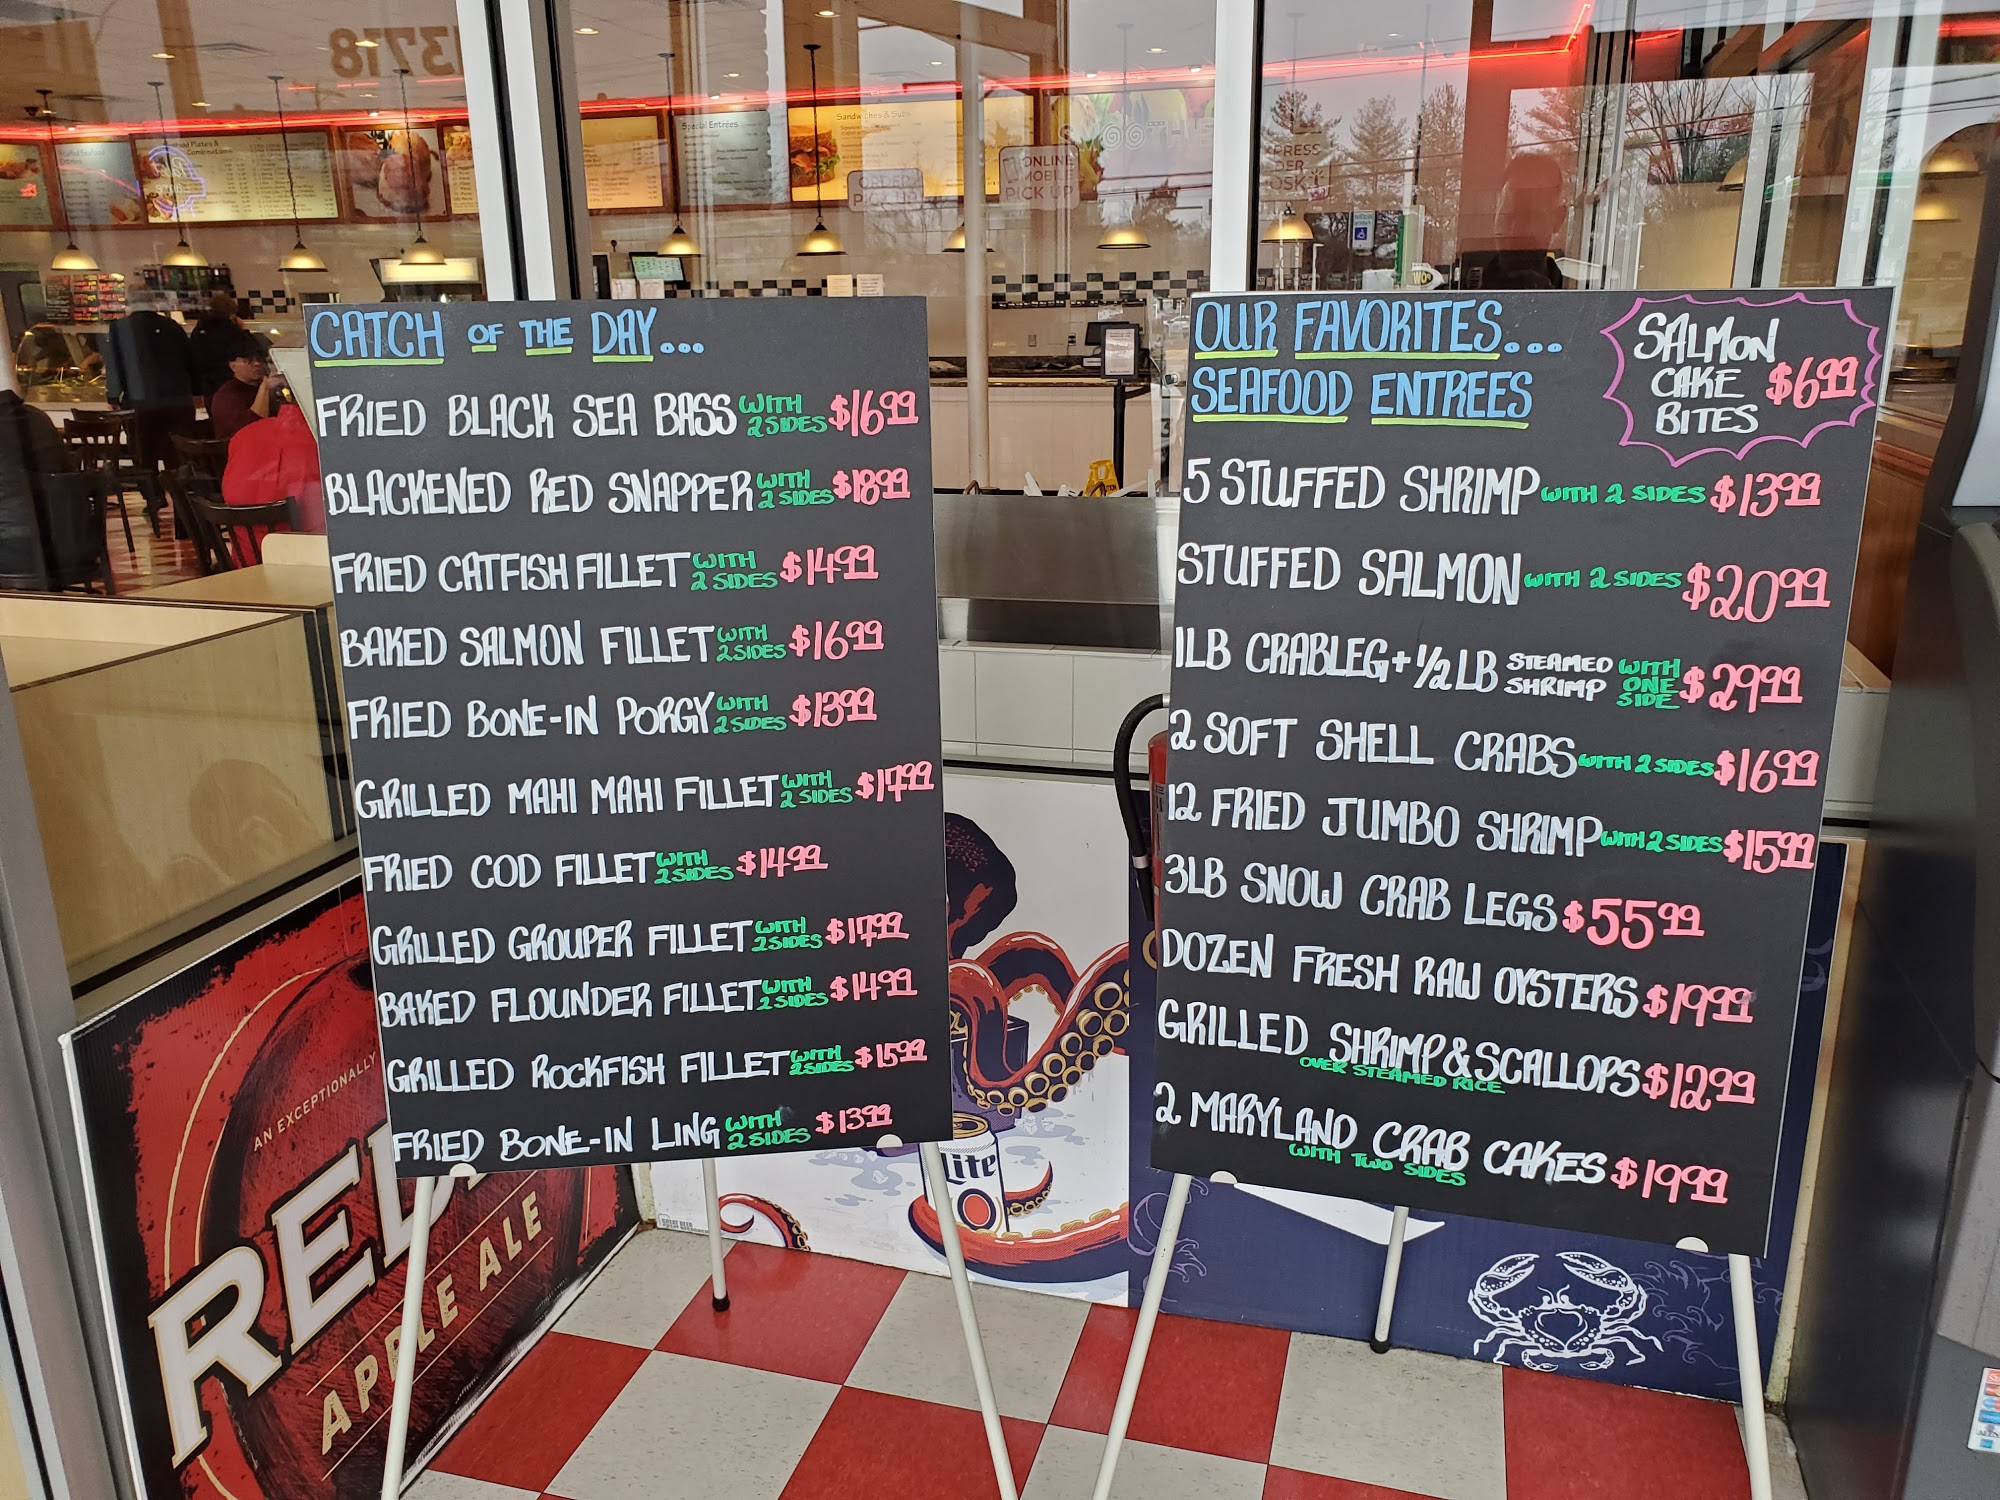 13718
Special Entrées
Sandwiches & Subs
ORDER
PICK UP
ONLINE
MOBILE
PICK UP
CATCH OF THE DAY...
FRIED BLACK SEA BASS WITH 2 SIDES $16.99
BLACKENED RED SNAPPER WITH 2 SIDES $18.99
FRIED CATFISH FILLET WITH 2 SIDES $14.99
BAKED SALMON FILLET WITH 2 SIDES $16.99
FRIED BONE-IN PORGY WITH 2 SIDES $13.99
GRILLED MAHI MAHI FILLET WITH 2 SIDES $17.99
FRIED COD FILLET WITH 2 SIDES $14.99
GRILLED GROUPER FILLET WITH 2 SIDES $17.99
BAKED FLOUNDER FILLET WITH 2 SIDES $14.99
GRILLED ROCKFISH FILLET WITH 2 SIDES $15.99
FRIED BONE-IN LING WITH 2 SIDES $13.99
OUR FAVORITES...
SEAFOOD ENTREES
SALMON
CAKE $6.99
BITES
5 STUFFED SHRIMP WITH 2 SIDES $13.99
STUFFED SALMON WITH 2 SIDES $20.99
1LB CRABLEG + 1/2 LB STEAMED SHRIMP WITH ONE SIDE $29.99
2 SOFT SHELL CRABS WITH 2 SIDES $16.99
12 FRIED JUMBO SHRIMP WITH 2 SIDES $15.99
3LB SNOW CRAB LEGS $55.99
DOZEN FRESH RAW OYSTERS $19.99
GRILLED SHRIMP & SCALLOPS $12.99
OVER STEAMED RICE
2 MARYLAND CRAB CAKES $19.99
WITH TWO SIDES
AN EXCEPTIONALLY
RED
APPLE ALE
Lite